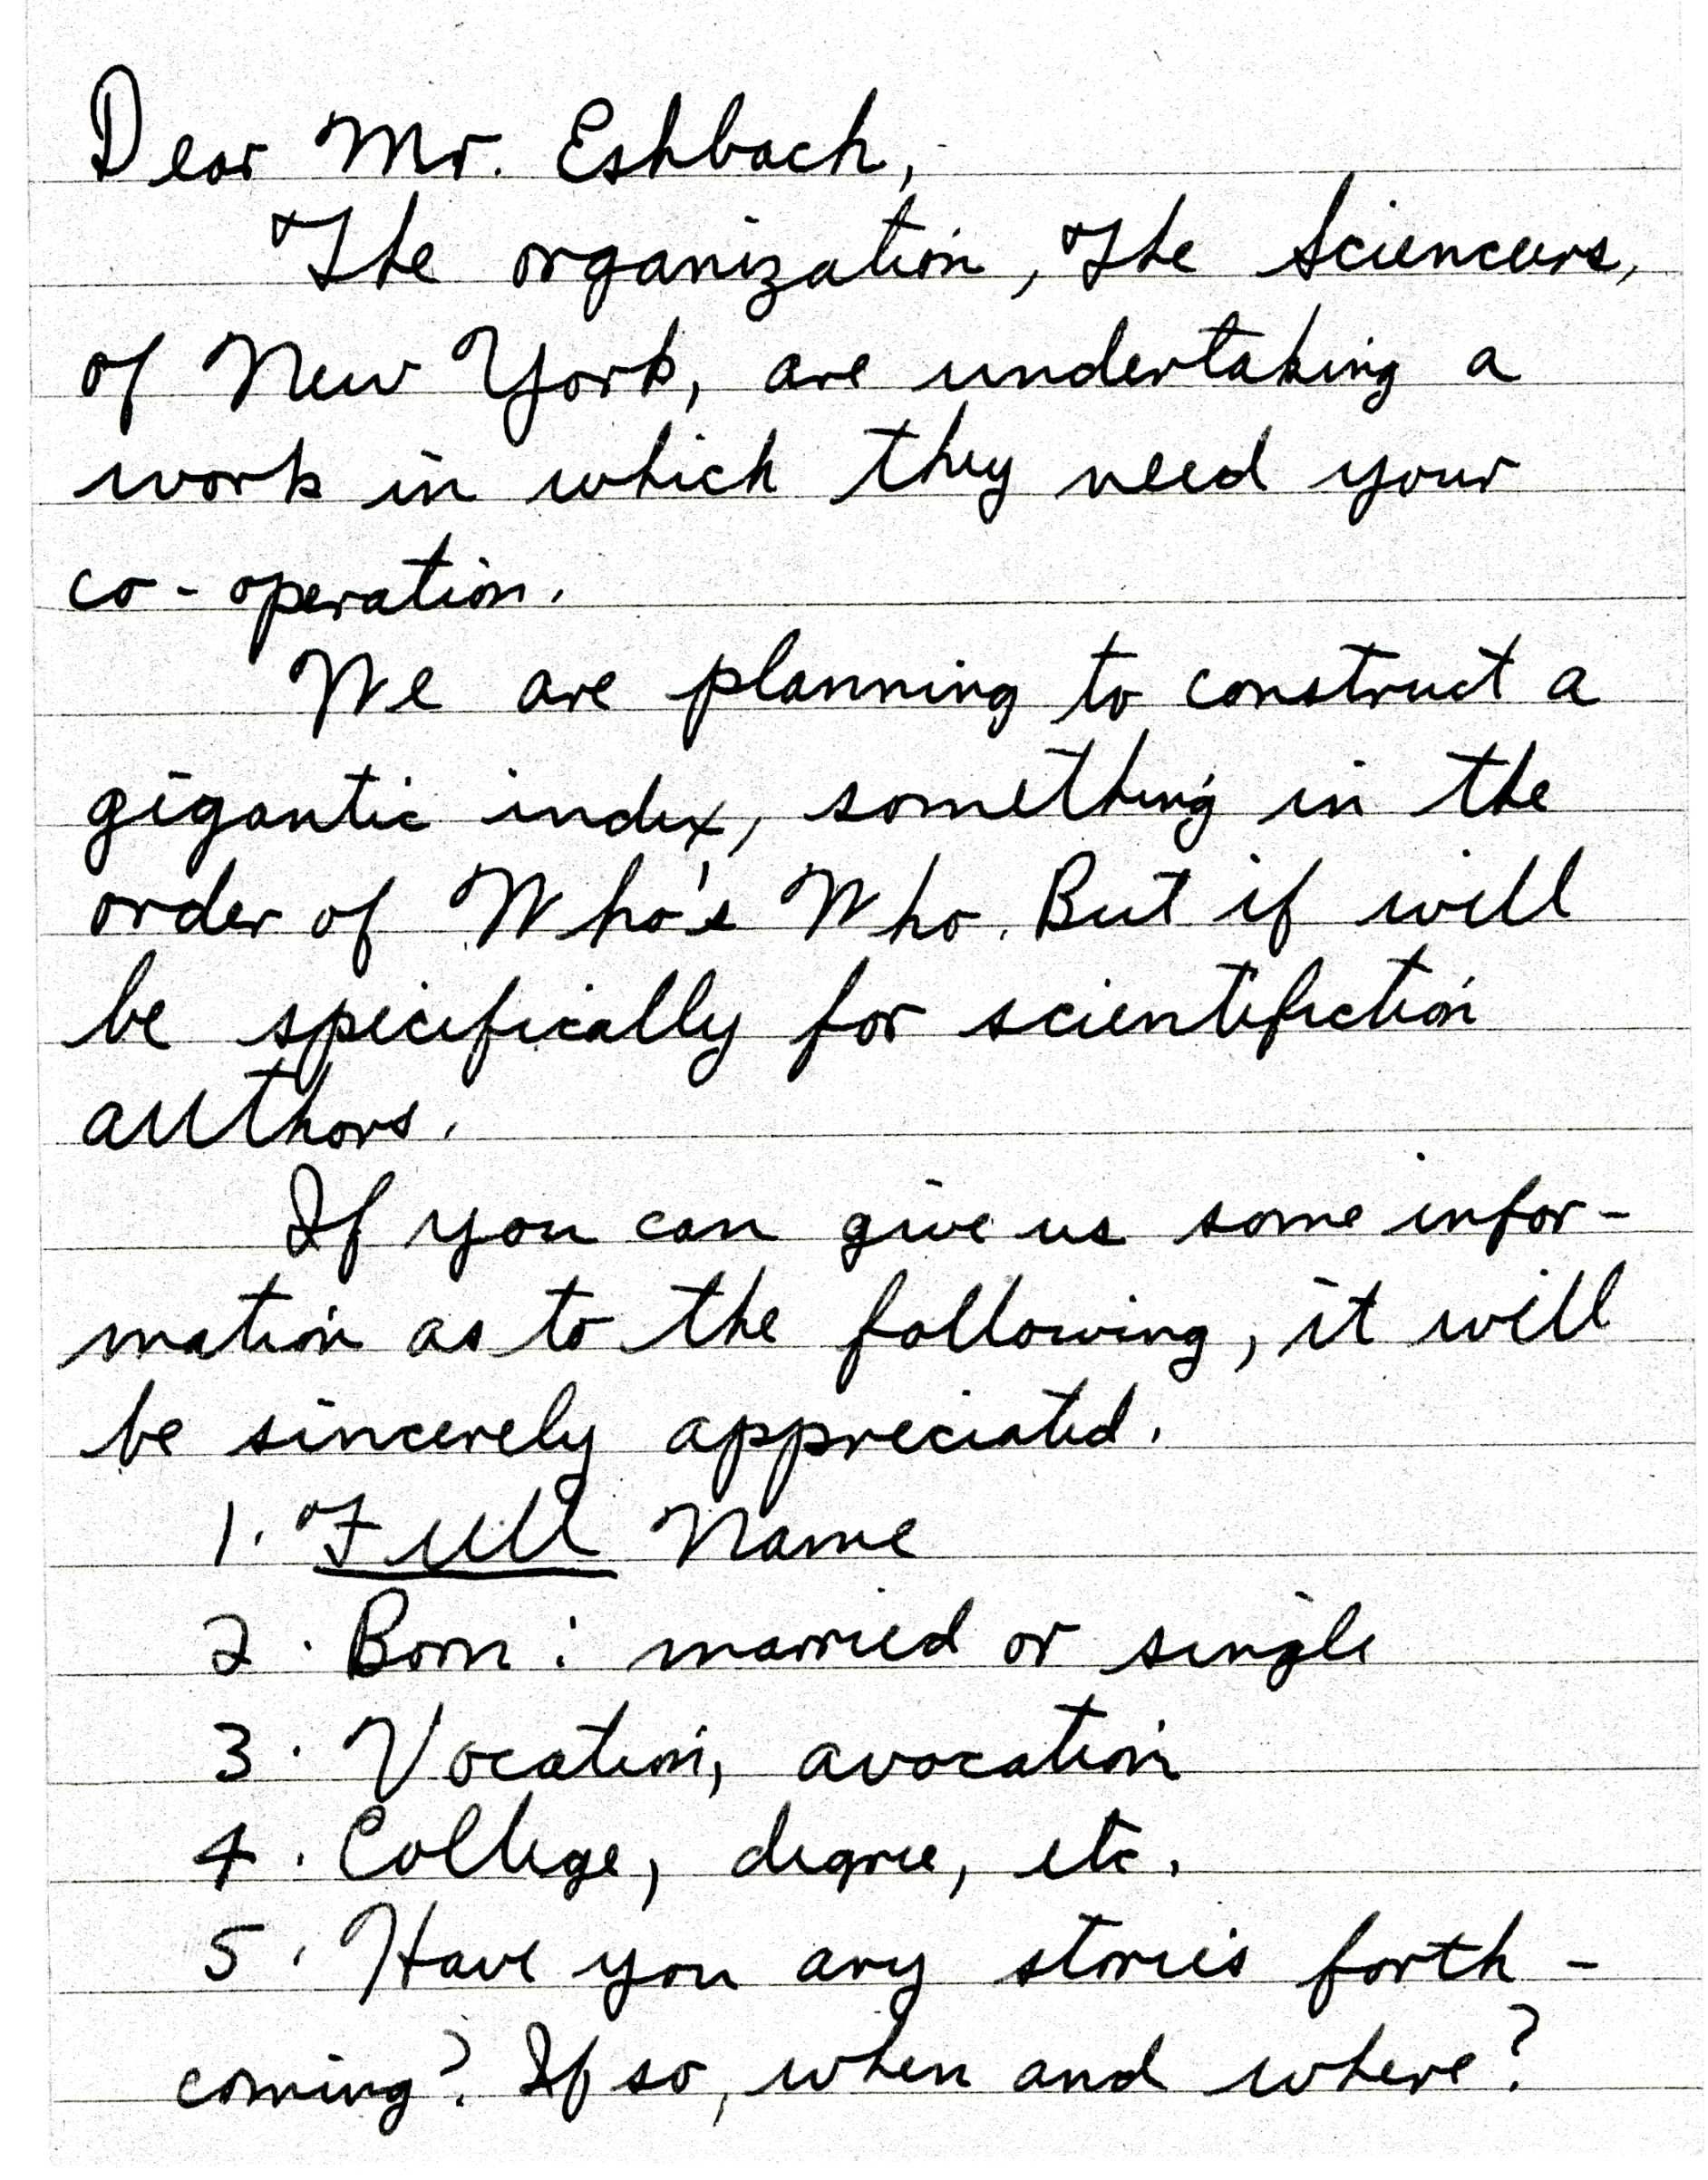 Dear Mr. Eshbach,
The organization, The Scienceers,
of New York, are undertaking a
work in which they need your
co-operation.
We are planning to construct a
gigantic index, something in the
order of Who's Who. But if will
be specifically for scientifiction
authors.
If you can give us some infor-
mation as to the following, it will
be sincerely appreciated.
1. Full Name
2. Born : married or single
3. Vocation, avocation
4. College, degree, etc.
5. Have you any stories forth-
coming? If so, when and where?